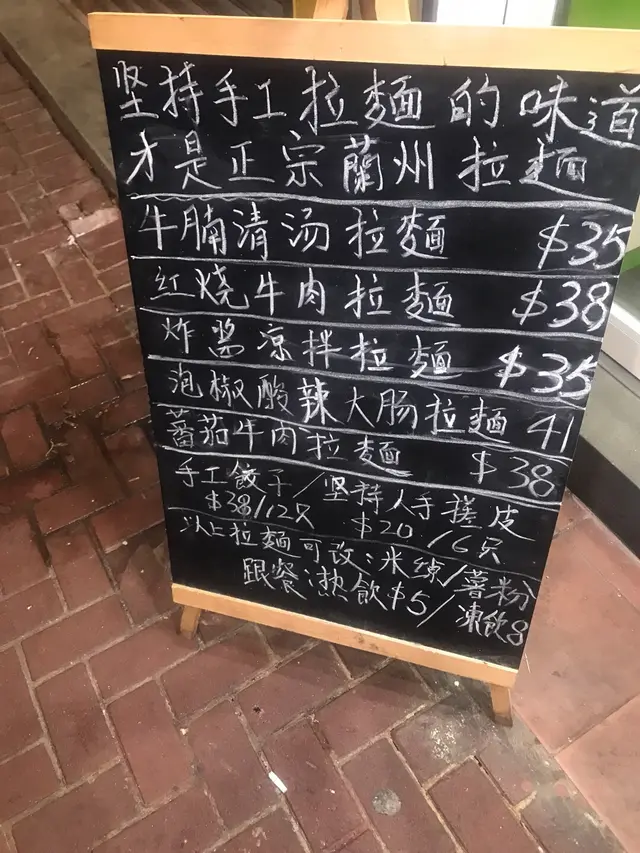 坚持手工拉麵的味道
才是正宗蘭州拉麵
牛腩清汤拉麵 $35
红烧牛肉拉麵 $38
炸酱凉拌拉麵 $35
泡椒酸辣大肠拉麵 41
蕃茄牛肉拉麵 $38
手工餃子/坚持人手搓皮
$38/12只 $20/6只
以上拉麵可改:米線/薯粉
跟餐:热飲$5/凍飲8